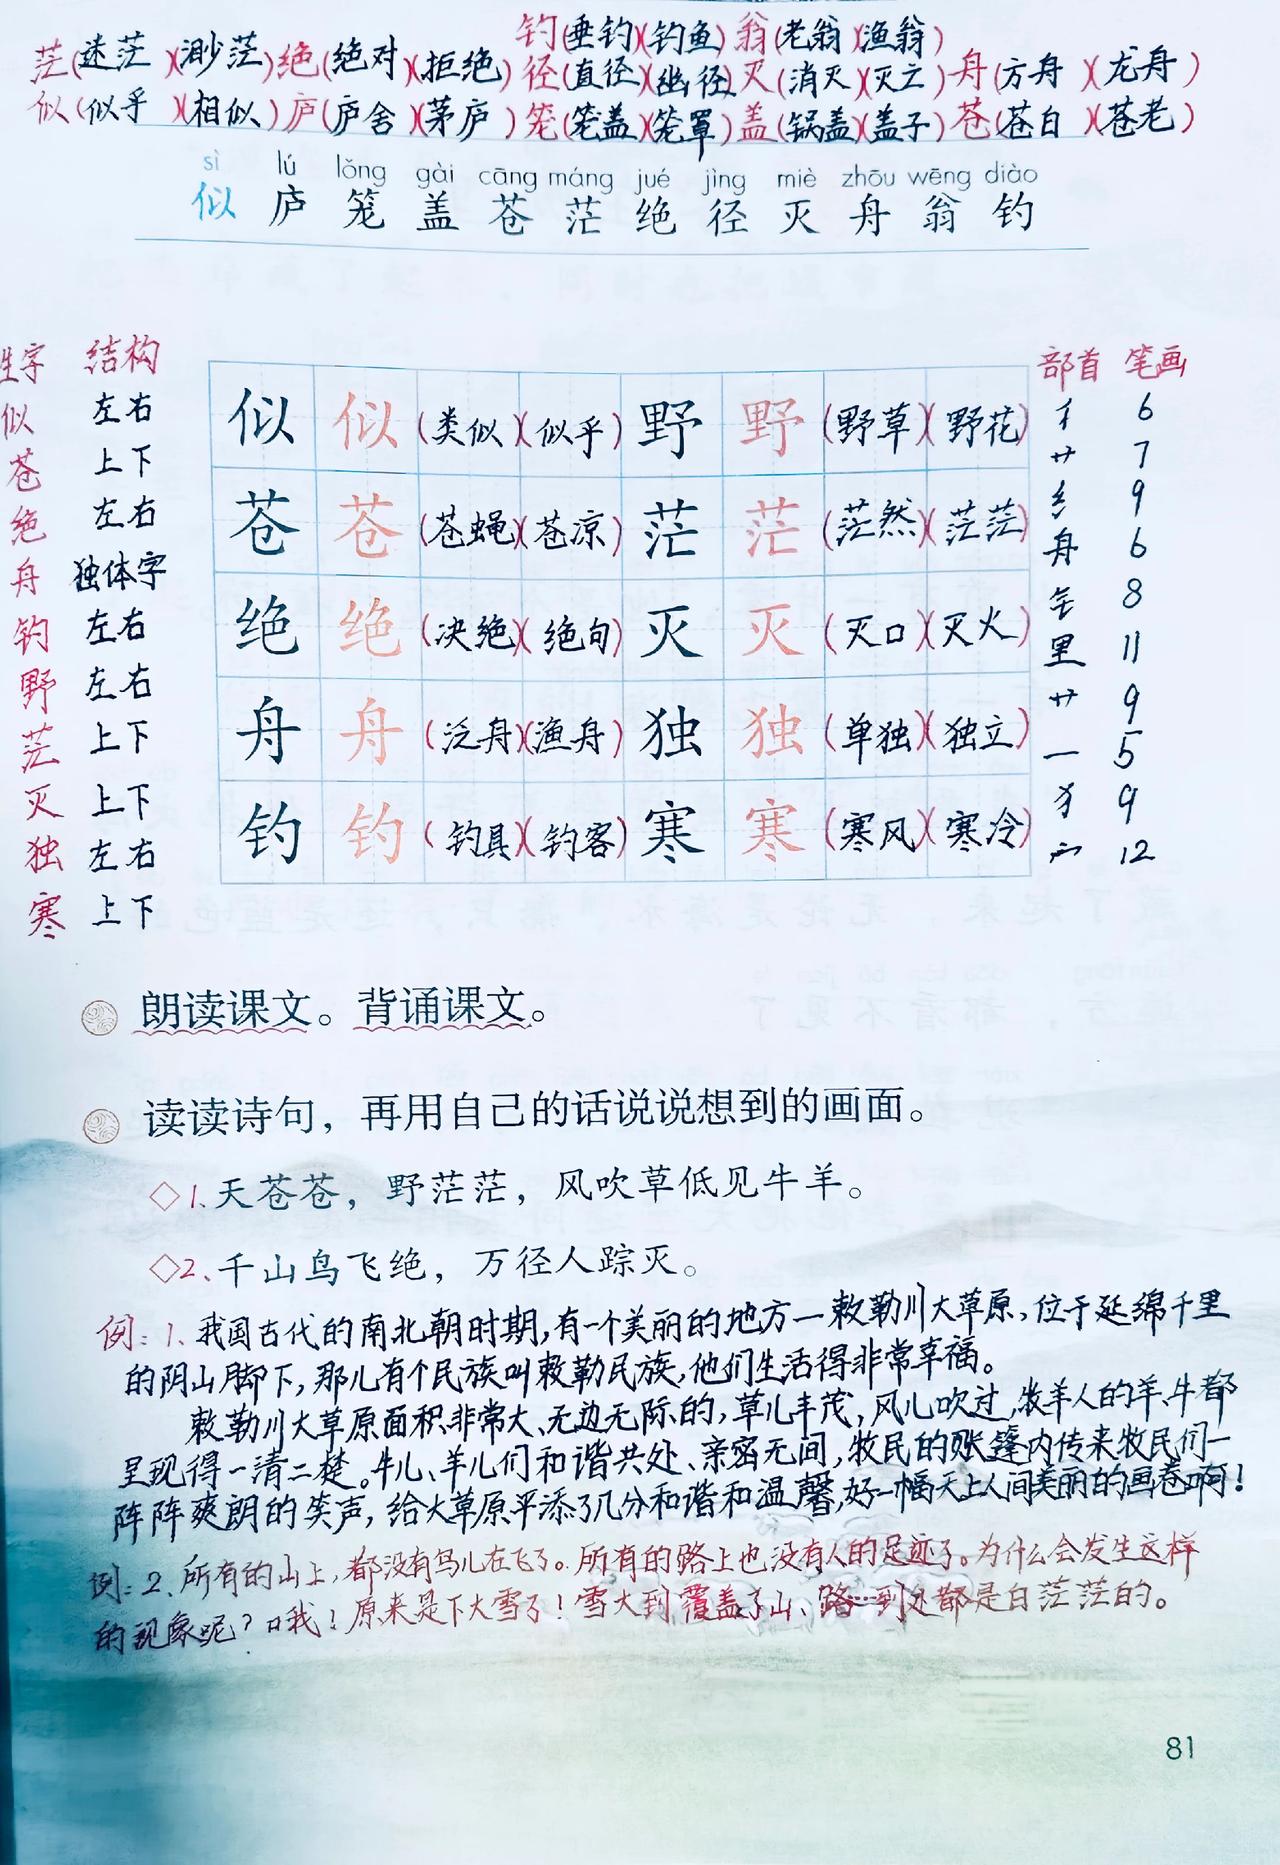 钓(垂钓)(钓鱼)翁(老翁)(渔翁)
茫(迷茫)(渺茫)绝(绝对)(拒绝)径(直径)(幽径)灭(消灭)(灭亡)舟(方舟)(龙舟)
似(似乎)(相似)庐(庐舍)(茅庐)笼(笼盖)(笼罩)盖(锅盖)(盖子)苍(苍白)(苍老)
sì lú lǒng gài cāng máng jué jìng miè zhōu wēng diào
似 庐 笼 盖 苍 茫 绝 径 灭 舟 翁 钓
生字 结构 部首 笔画
似 左右 似 似 (类似)(似乎) 野 野 (野草)(野花) 亻 6
苍 上下 苍 苍 (苍蝇)(苍凉) 茫 茫 (茫然)(茫茫) 艹 7
绝 左右 绝 绝 (决绝)(绝句) 灭 灭 (灭口)(灭火) 纟 9
舟 独体字 舟 舟 (泛舟)(渔舟) 独 独 (单独)(独立) 舟 6
钓 左右 钓 钓 (钓具)(钓客) 寒 寒 (寒风)(寒冷) 钅 8
野 左右 里 11
茫 上下 艹 9
灭 上下 一 5
独 左右 犭 9
寒 上下 宀 12
朗读课文。背诵课文。
读读诗句，再用自己的话说说想到的画面。
◇1.天苍苍，野茫茫，风吹草低见牛羊。
◇2、千山鸟飞绝，万径人踪灭。
例：1、我国古代的南北朝时期,有一个美丽的地方—敕勒川大草原,位于延绵千里
的阴山脚下,那儿有个民族叫敕勒民族,他们生活得非常幸福。
敕勒川大草原面积非常大、无边无际的,草儿丰茂,风儿吹过,牧羊人的羊、牛都
呈现得一清二楚。牛儿、羊儿们和谐共处、亲密无间,牧民的账篷内传来牧民们一
阵阵爽朗的笑声,给大草原平添了几分和谐和温馨,好一幅天上人间美丽的画卷啊!
例：2、所有的山上,都没有鸟儿在飞了。所有的路上也没有人的足迹了。为什么会发生这样
的现象呢?哦!原来是下大雪了!雪大到覆盖了山、路…到处都是白茫茫的。
81